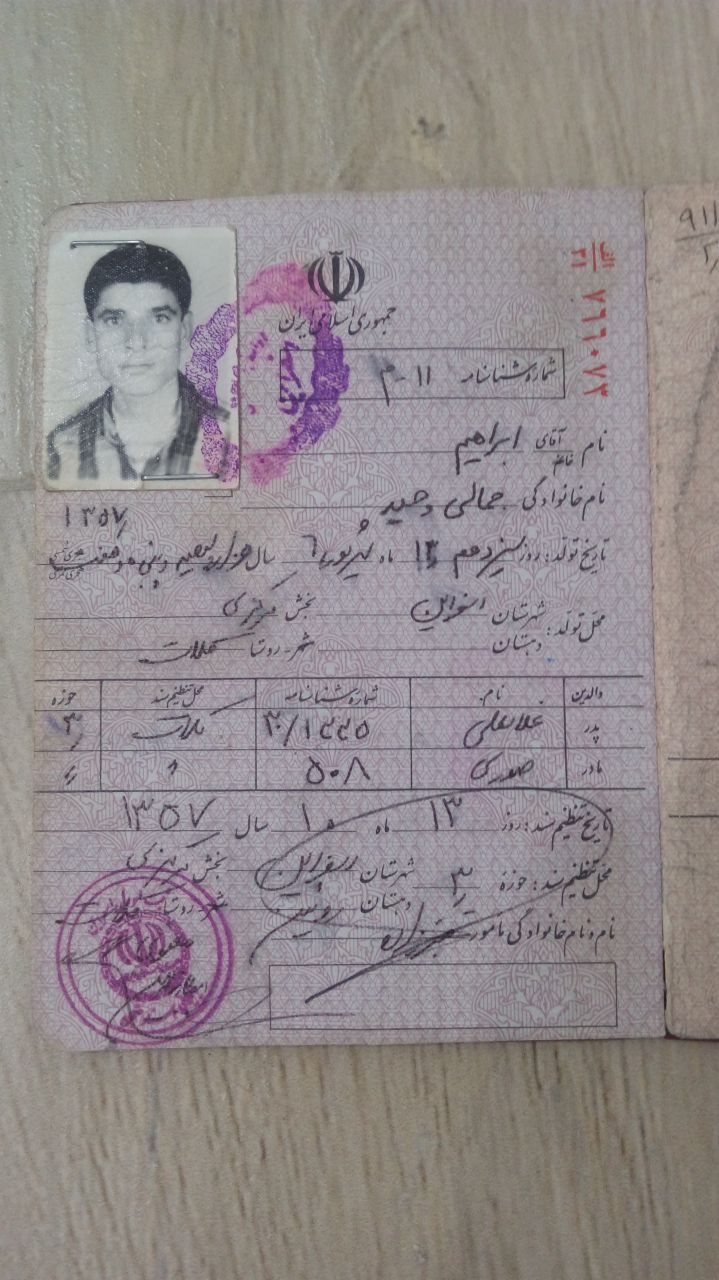 جمهوری اسلامی ایران
الف
۲۱ ۷۶۶۰۷۲
شماره شناسنامه ۱۱-م
نام آقای خانم ابراهیم
نام خانوادگی جمالی وحید
۱۳۵۷
تاریخ تولد: روز سیزدهم ۱۳ ماه شهریور ۶ سال هزار و سیصد و پنجاه و هفت هجری شمسی هجری قمری
محل تولد: شهرستان اسفراین بخش مرکزی
دهستان شهر-روستا کلات
والدین نام شماره شناسنامه محل تنظیم سند حوزه
پدر غلامعلی کلات ۳
مادر صغری ۵۰۸ 〃 〃
تاریخ تنظیم سند: روز ۱۳ ماه ۱۰ سال ۱۳۵۷
محل تنظیم سند: حوزه ۳ شهرستان اسفراین بخش مرکزی
دهستان روئین شهر-روستا کلات
نام و نام خانوادگی مامور
۹۱۱